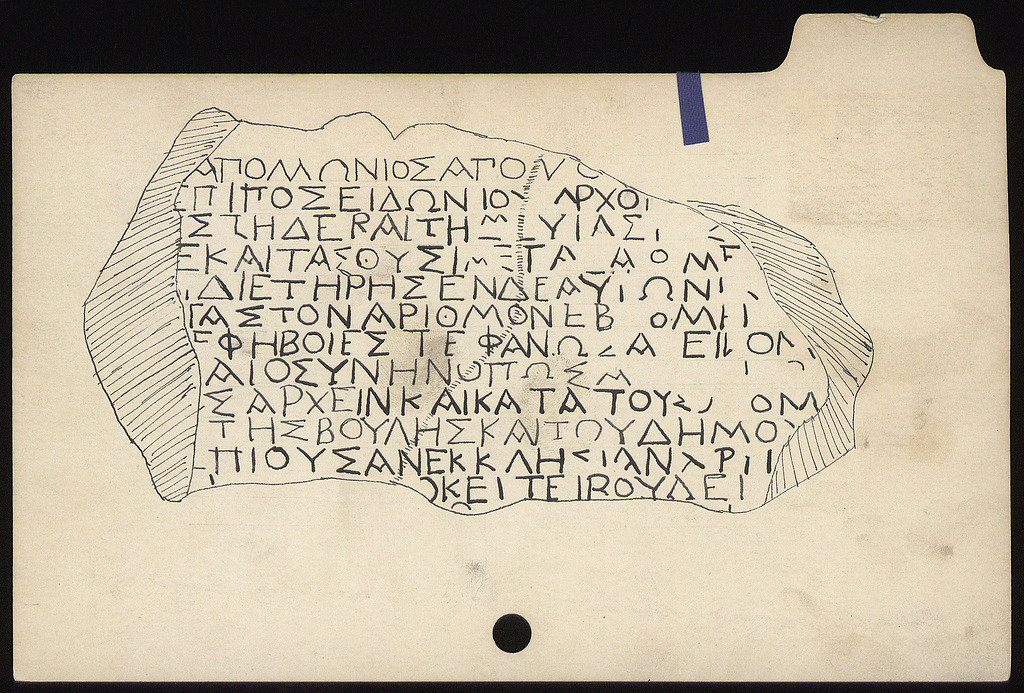 ΑΠΟΛΛΩΝΙΟΣΑΠΟ
ΕΠΙΠΟΣΕΙΔΩΝΙΟΥ ΑΡΧΟ
ΔΕΚΑΙΤΗ
ΕΚΑΙΤΑΣΟΥΣΙ ΕΤΑ ΔΟΜΕ
ΔΙΕΤΗΡΗΣΕΝΔΕΑΥ ΩΝ
ΓΑΣΤΟΝΑΡΙΘΜΟΝΕΒ ΟΜΗ
ΕΦΗΒΟΙΕΣΤΕΦΑΝΩ
ΑΙΟΣΥΝΗΝΟΠΩΣ
ΣΑΡΧΕΙΝΚΑΙΚΑΤΑΤΟΥΣ ΟΜ
ΤΗΣΒΟΥΛΗΣΚΑΙΤΟΥΔΗΜΟΥ
ΠΙΟΥΣΑΝΕΚΚΛΗΣΙΑΝΧΡ
ΟΚΕΙΤΕΙΒΟΥΛΕΙ